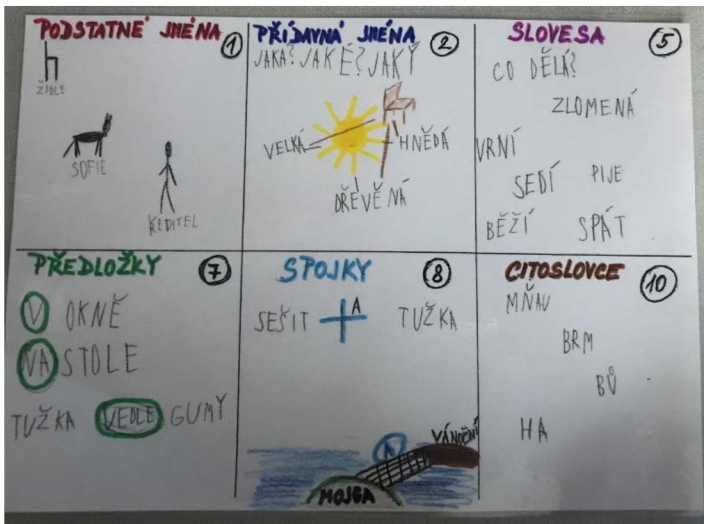 PODSTATNÉ JMÉNA 1
ŽIDLE
SOFIE
ŘEDITEL
PŘÍDAVNÁ JMÉNA 2
JAKÁ? JAKÉ? JAKÝ
VELKÁ
HNĚDÁ
DŘEVĚNÁ
SLOVESA 5
CO DĚLÁ?
ZLOMENÁ
VRNÍ
SEDÍ PIJE
BĚŽÍ SPÁT
PŘEDLOŽKY 7
V OKNĚ
NA STOLE
TUŽKA VEDLE GUMY
SPOJKY 8
SEŠIT A TUŽKA
A
VÁNOČNÍ
MOJGA
CITOSLOVCE 10
MŇAU
BRM
BŮ
HA